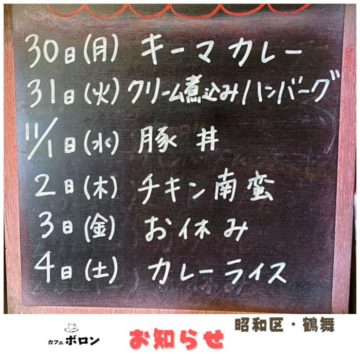 30日(月) キーマカレー
31日(火) クリーム煮込みハンバーグ
11/1日(水) 豚丼
2日(木) チキン南蛮
3日(金) お休み
4日(土) カレーライス
カフェ ボロン
お知らせ
昭和区・鶴舞